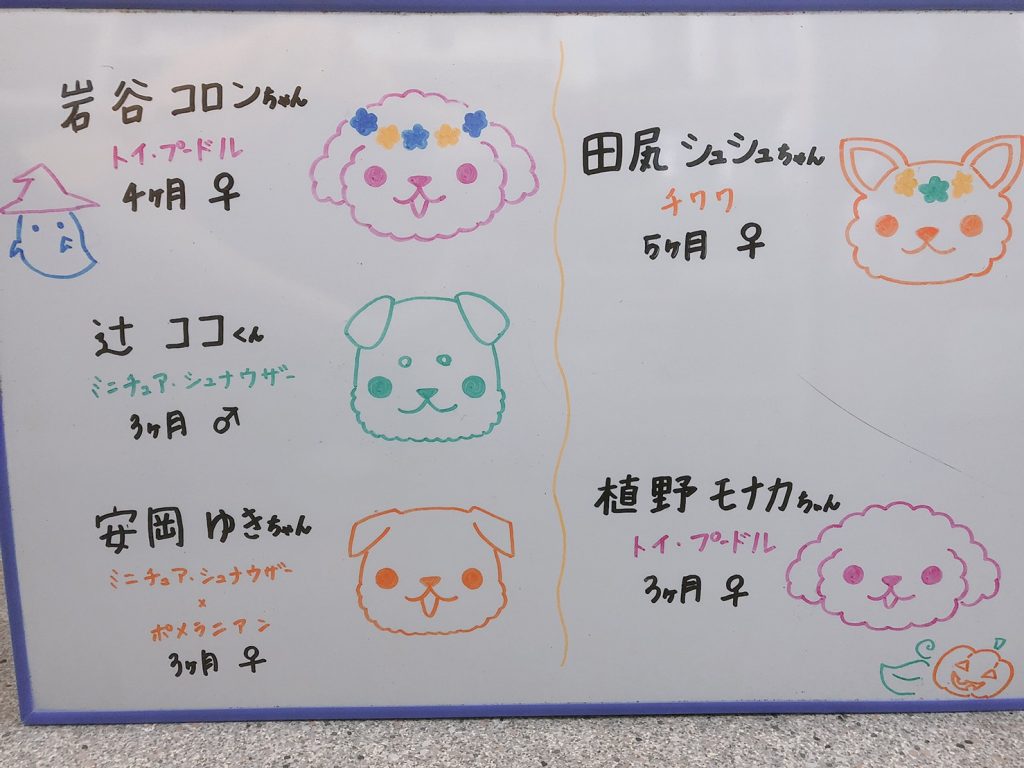 岩谷 コロンちゃん
トイ・プードル
4ヶ月 ♀
辻 ココくん
ミニチュア・シュナウザー
3ヶ月 ♂
安岡 ゆきちゃん
ミニチュア・シュナウザー
×
ポメラニアン
3ヶ月 ♀
田尻 シュシュちゃん
チワワ
5ヶ月 ♀
植野 モナカちゃん
トイ・プードル
3ヶ月 ♀